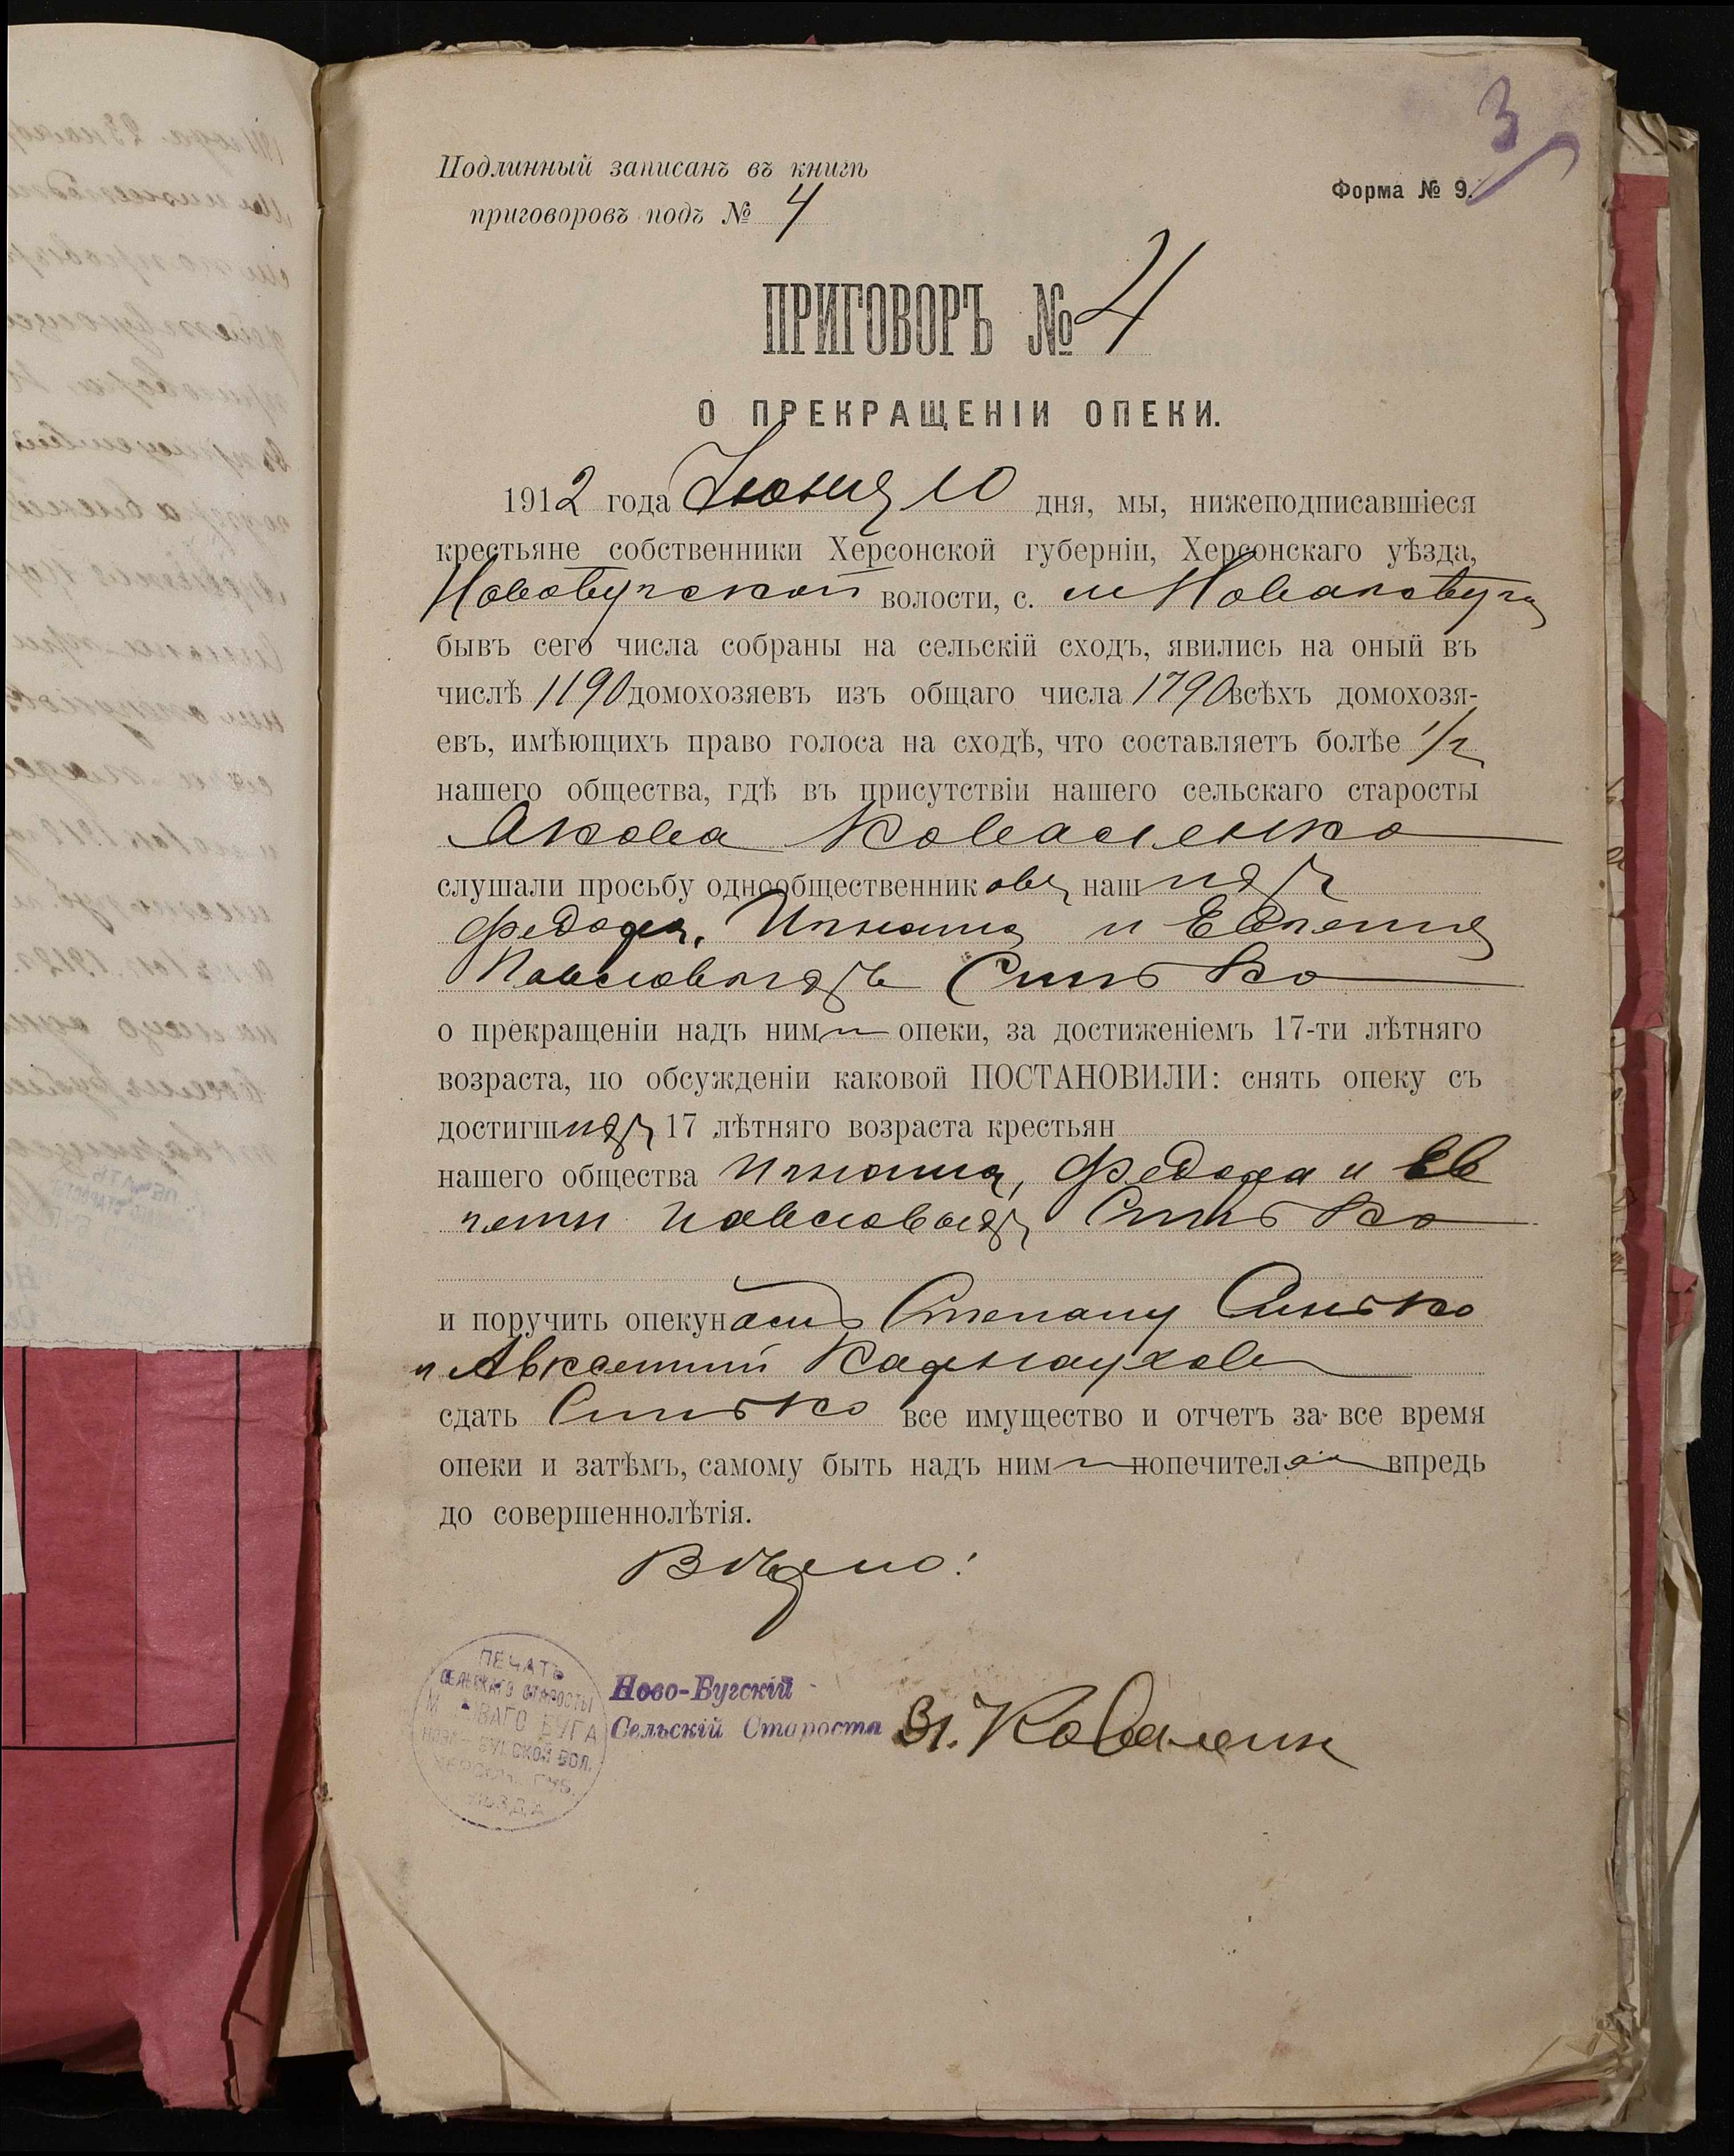 3
Подлинный записанъ въ книгѣ
приговоровъ подъ № 4
Форма № 9.
ПРИГОВОРЪ № 4
О ПРЕКРАЩЕНІИ ОПЕКИ.
1912 года Іюня 10 дня, мы, нижеподписавшіеся
крестьяне собственники Херсонской губерніи, Херсонскаго уѣзда,
Новобугской волости, с. м Новаго Буга
бывъ сего числа собраны на сельскій сходъ, явились на оный въ
числѣ 1190 домохозяевъ изъ общаго числа 1790 всѣхъ домохозя-
евъ, имѣющихъ право голоса на сходѣ, что составляетъ болѣе 1/2
нашего общества, гдѣ въ присутствіи нашего сельскаго старосты
Якова Коваленко
слушали просьбу однообщественниковъ нашихъ
Федора, Игната и Евгенія
Павловыхъ Синько
о прекращеніи надъ ними опеки, за достиженіемъ 17-ти лѣтняго
возраста, по обсужденіи каковой ПОСТАНОВИЛИ: снять опеку съ
достигшихъ 17 лѣтняго возраста крестьян
нашего общества Игната, Федора и Ев
гени Павловыхъ Синько
и поручить опекунамъ Степану Синько
и Авксентий Карнаухов
сдать Синько все имущество и отчетъ за все время
опеки и затѣмъ, самому быть надъ ними попечител впредь
до совершеннолѣтія.
Вѣрно:
ПЕЧАТЬ
СЕЛЬСКАГО СТАРОСТЫ
М. НОВАГО БУГА
НОВО-БУГСКОЙ ВОЛ.
ХЕРСОН. ГУБ.
УѢЗДА
Ново-Бугскій
Сельскій Староста Коваленк